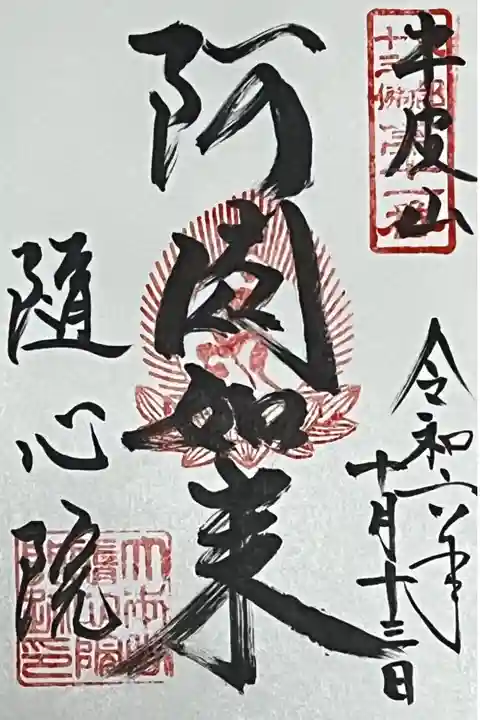 牛皮山
令和六年
十月十三日
阿閦如来
隨心院